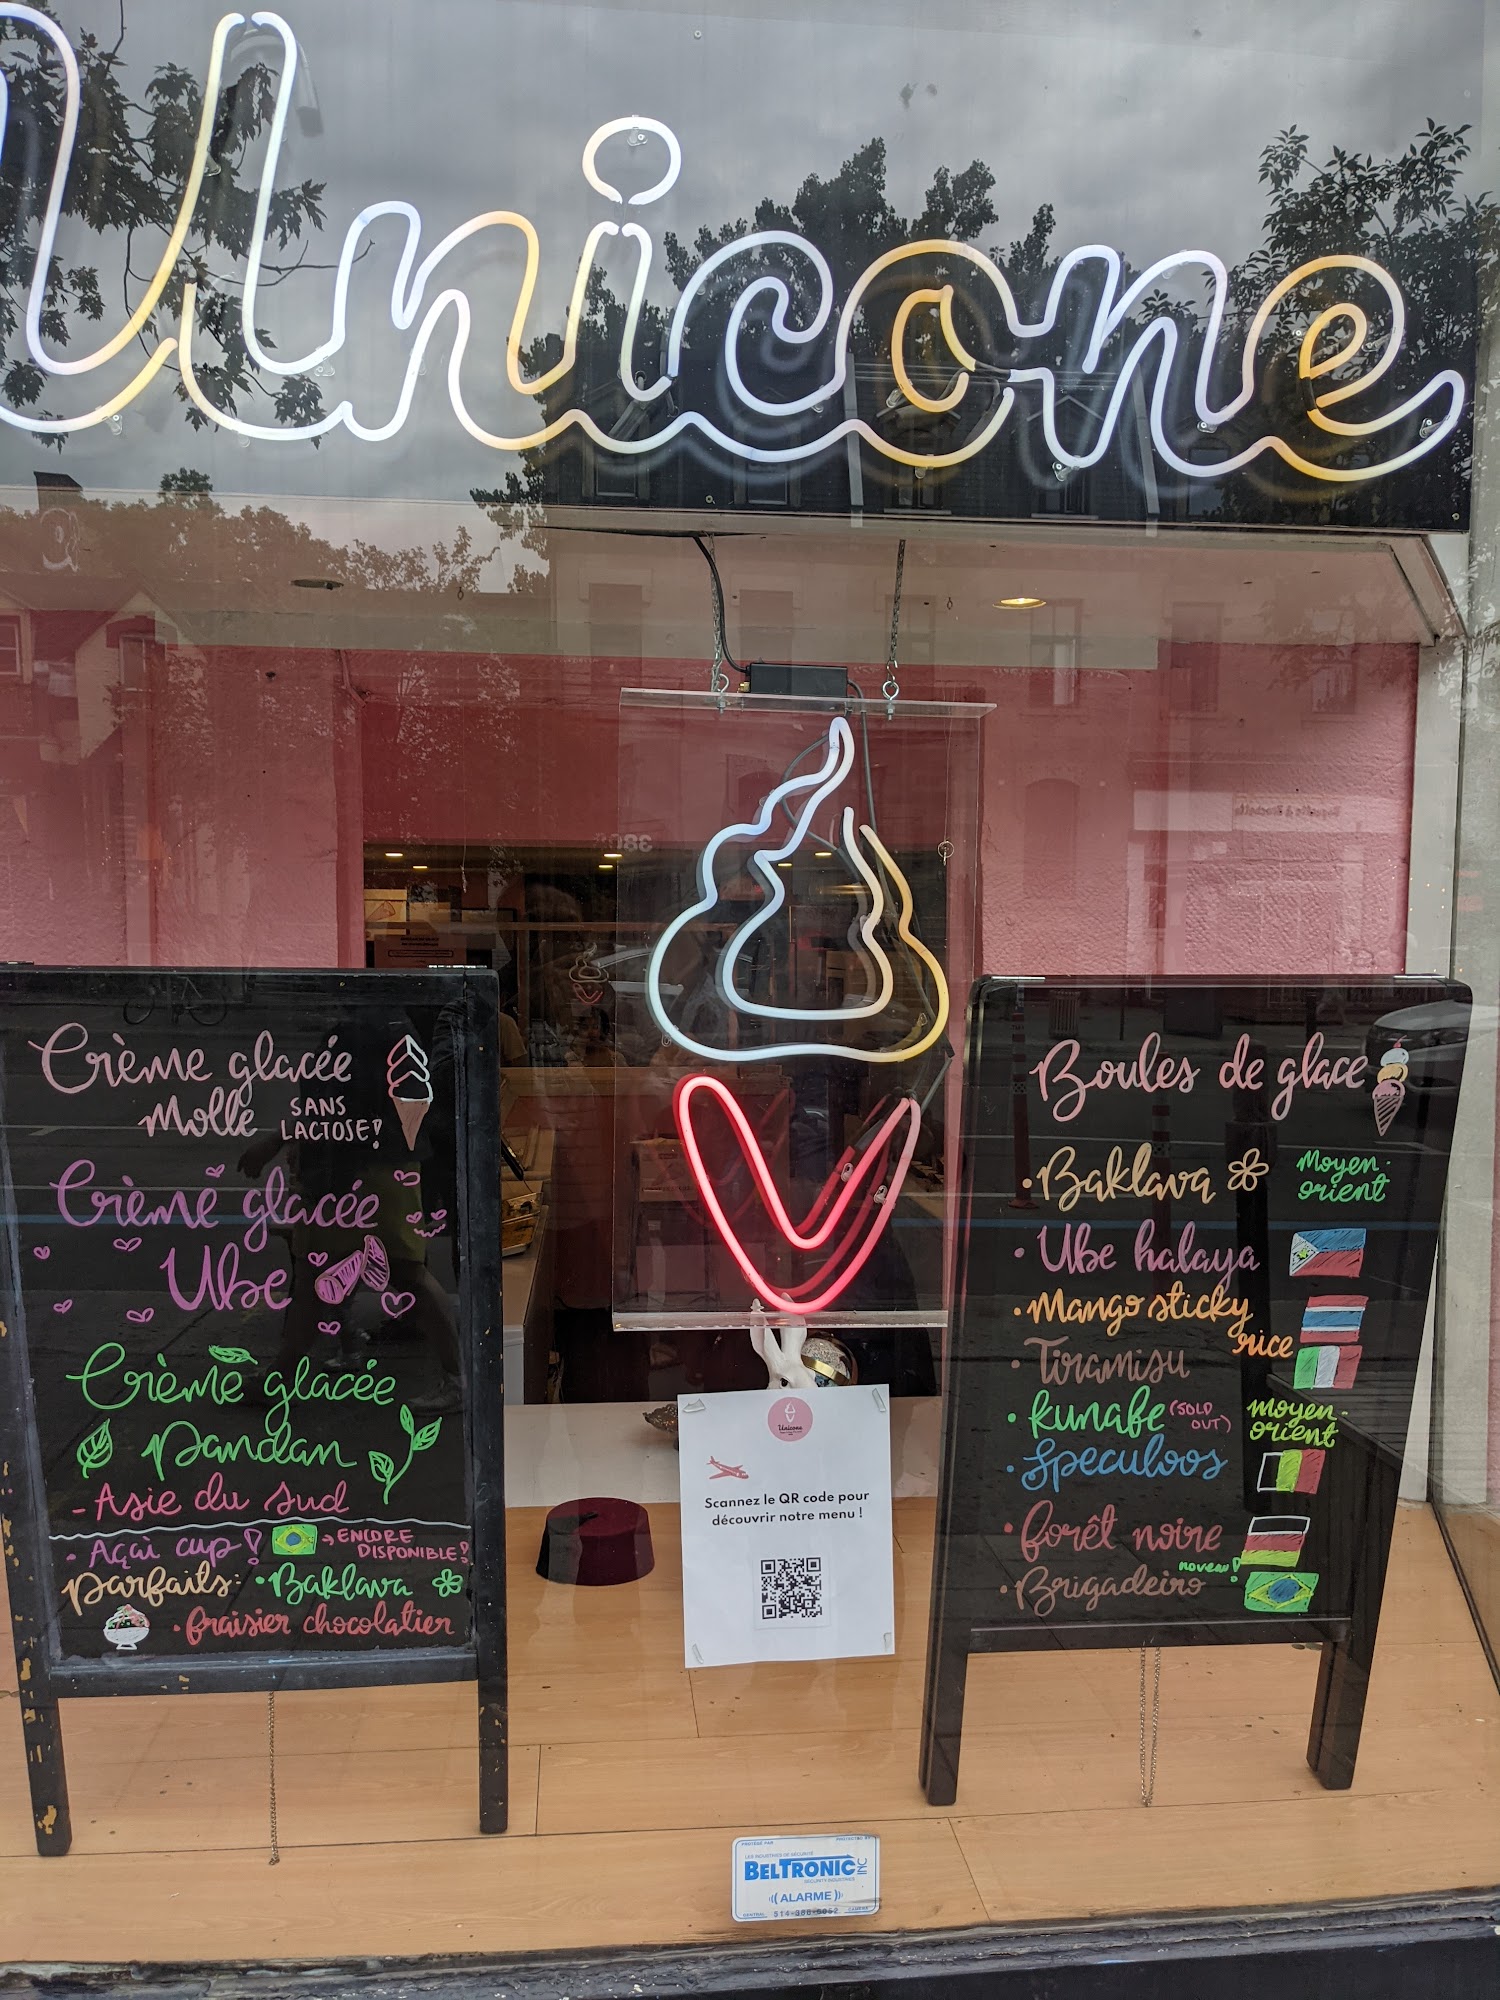 Unicone
Crème glacée
Molle SANS
LACTOSE!
Crème glacée
Ube
Crème glacée
pandan
- Asie du sud
- Açai cup! → ENCORE
DISPONIBLE!
parfaits: • Baklava
• fraisier chocolatier
Scannez le QR code pour
découvrir notre menu !
Boules de glace
• Baklava Moyen-
orient
• Ube halaya
• Mango sticky
rice
• Tiramisu
• Kunafe (SOLD
OUT) moyen-
orient
• Speculoos
• forêt noire
• Brigadeiro noveau!
PROTÉGÉ PAR PROTECTED BY
LES INDUSTRIES DE SÉCURITÉ
BELTRONIC INC
SECURITY INDUSTRIES
((ALARME))
CENTRAL 514- CAMÉRA